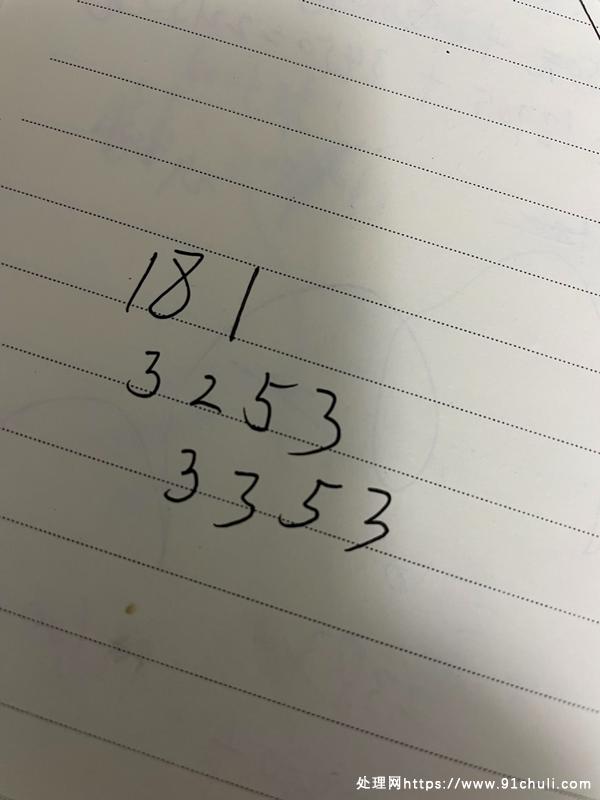 181
3253
3353
处理网https://www.91chuli.com